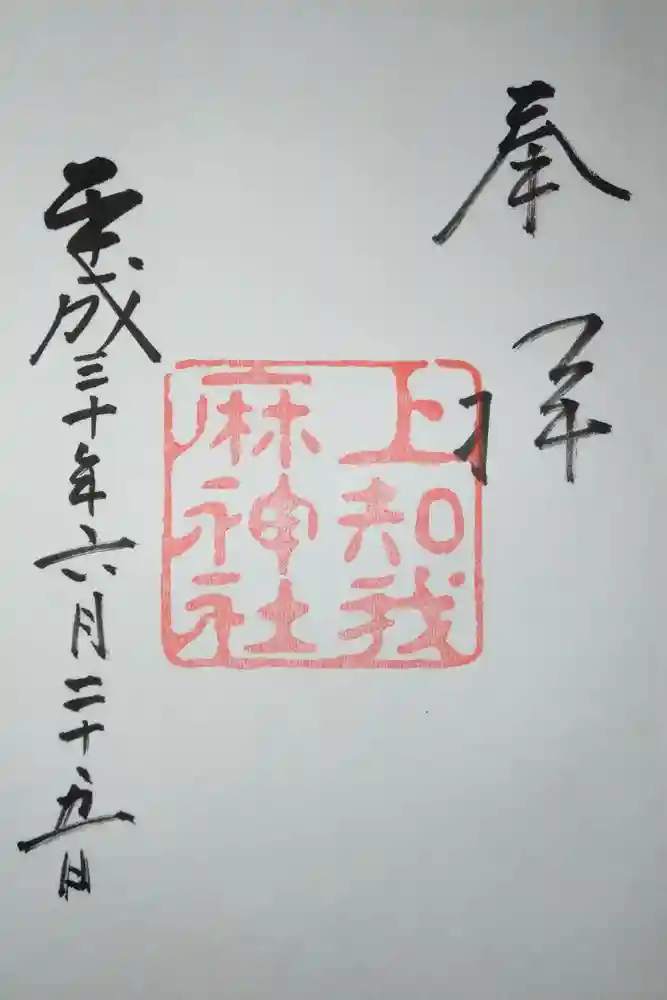 奉拝
上知我
麻神社
平成三十年六月二十五日